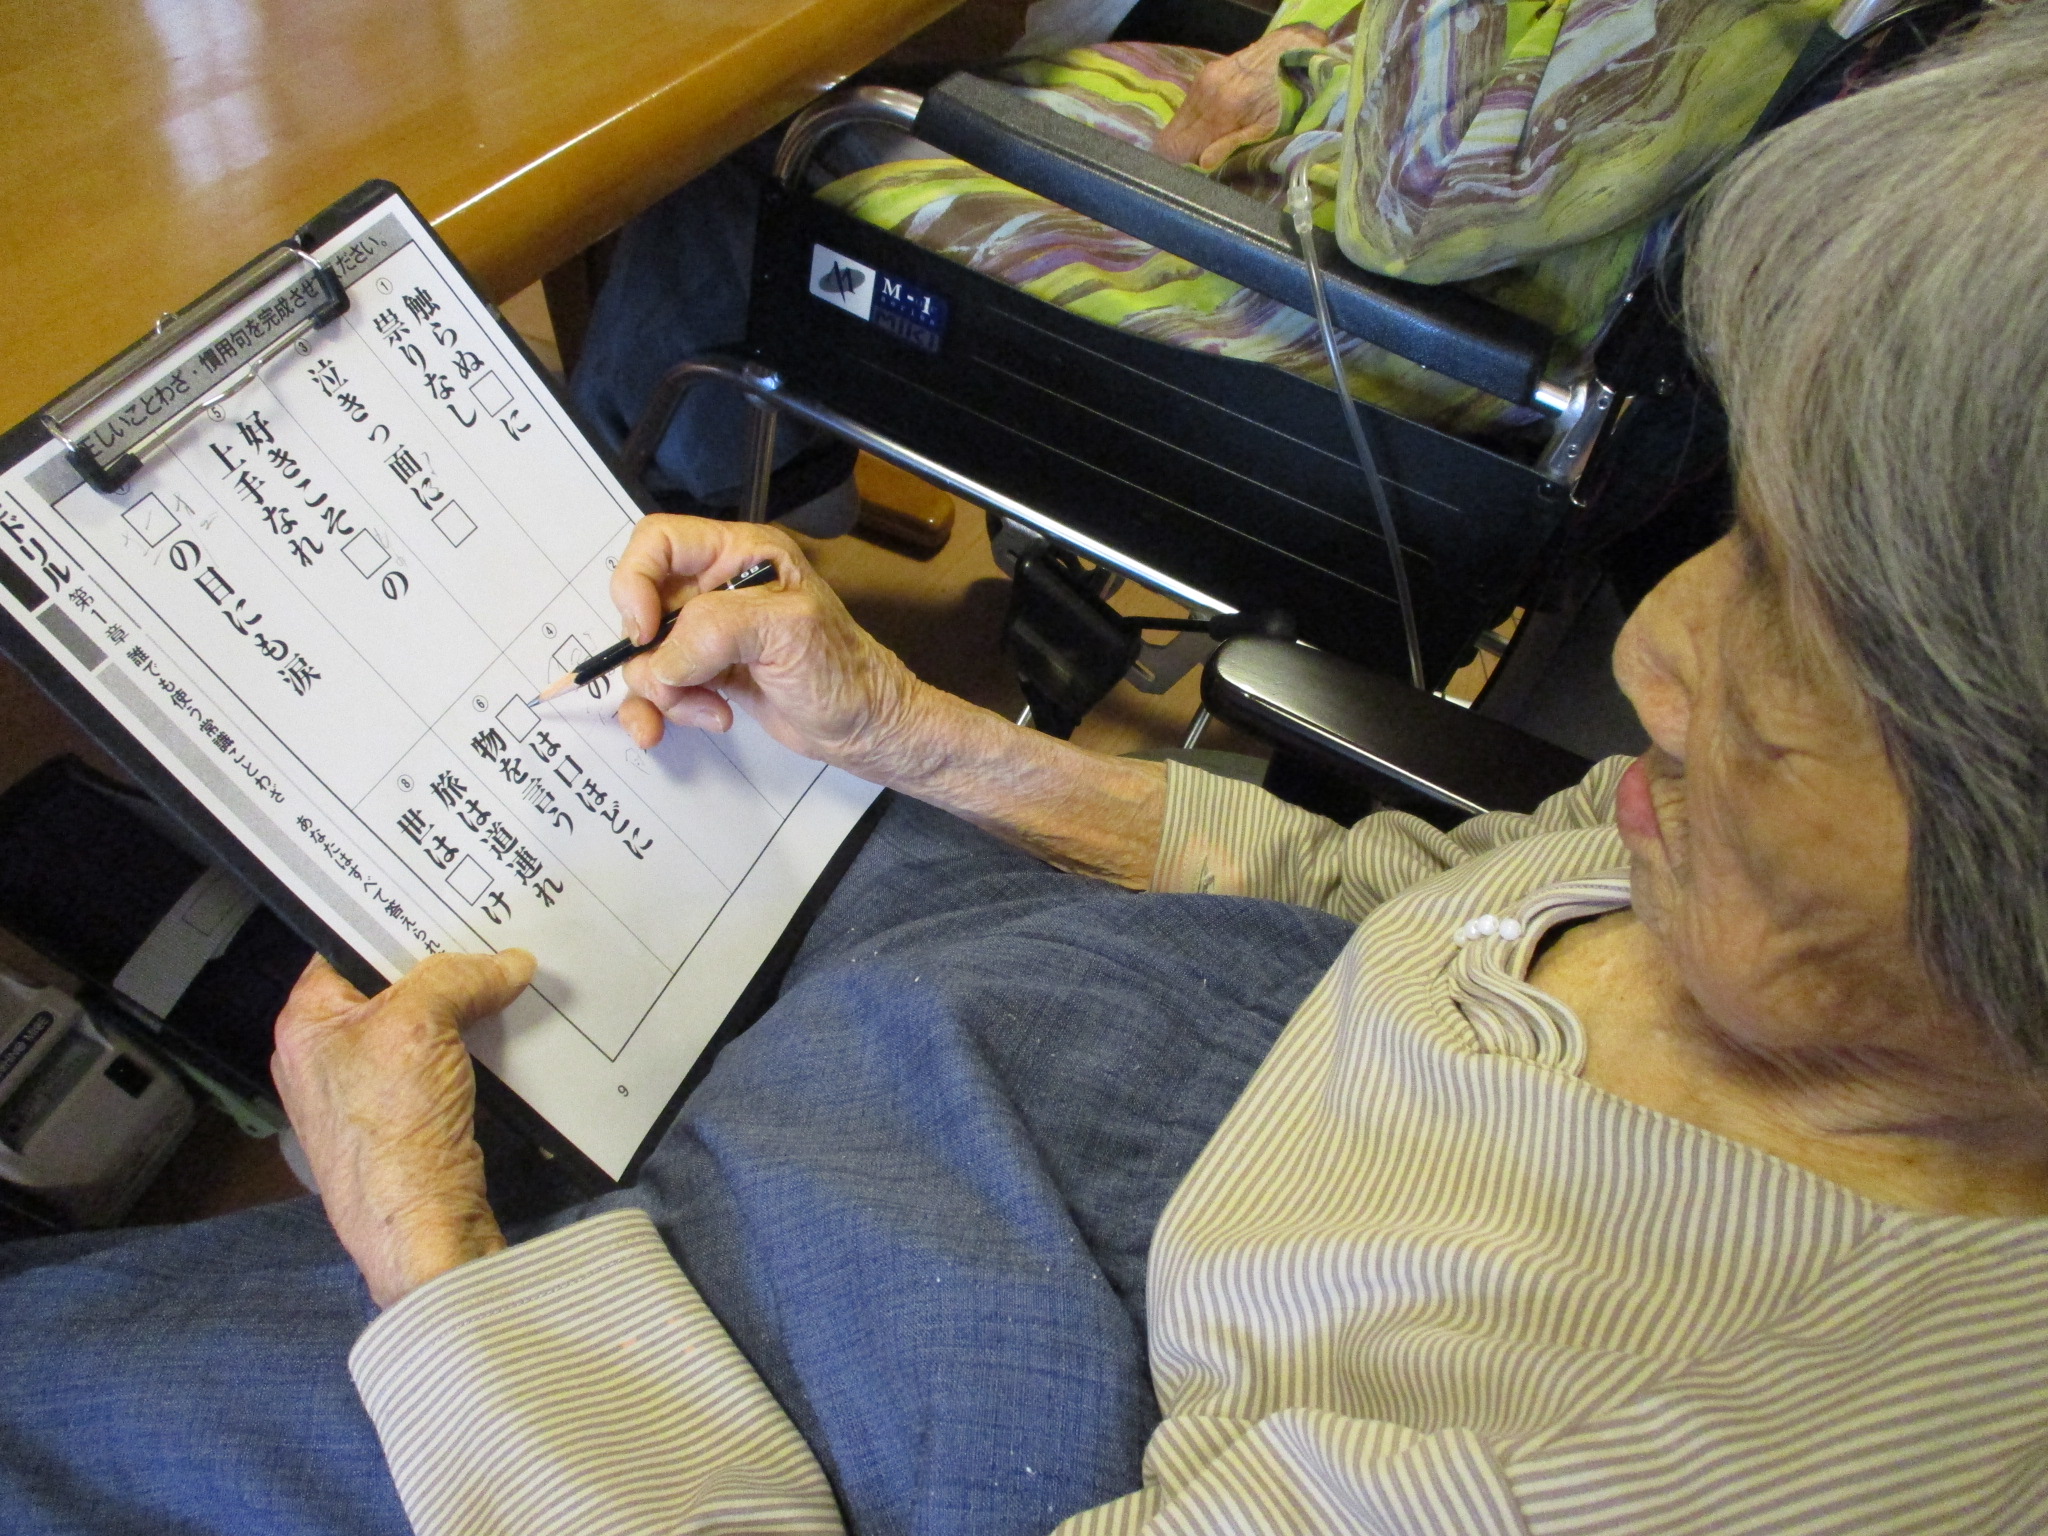 正しいことわざ・慣用句を完成させ
ださい。
①
触らぬ□に
祟りなし
②
③
泣きっ面に□
④
の
⑤
好きこそ□の
上手なれ
⑥
□は口ほどに
物を言う
□の目にも涙
⑧
旅は道連れ
世は□け
ドリル
第1章 誰でも使う常識ことわざ
あなたはすべて答えられ
9
6B
M-1
MIKI